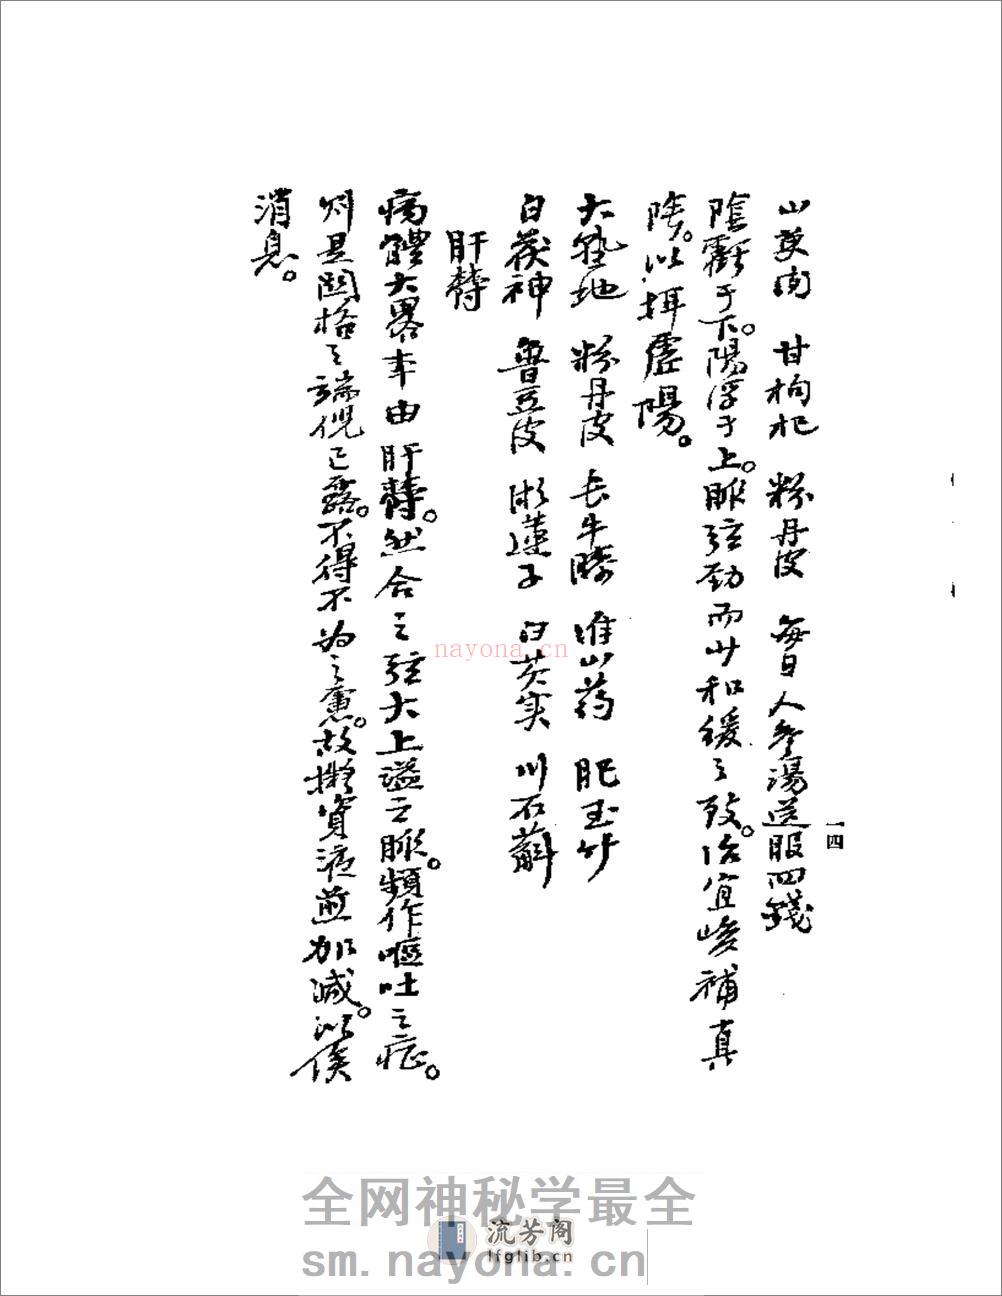 山萸肉　甘枸杞　粉丹皮　每日人參湯送服四錢
陰虧于下。陽浮于上。脈弦勁而少和緩之致。治宜峻補真
陰。以揖虛陽。
大熟地　粉丹皮　長牛膝　淮山药　肥玉竹
白茯神　魯豆皮　湘蓮子　白芡实　川石斛
肝鬱
病體大畧本由肝鬱。然合之弦大上溢之脈。頻作嘔吐之症。
則是関格之端倪已露。不得不为之慮。故擬資液煎加減。以俟
消息。
一四
nayona.cn
全网神秘学最全
sm.nayona.cn
流芳阁
lfglib.cn